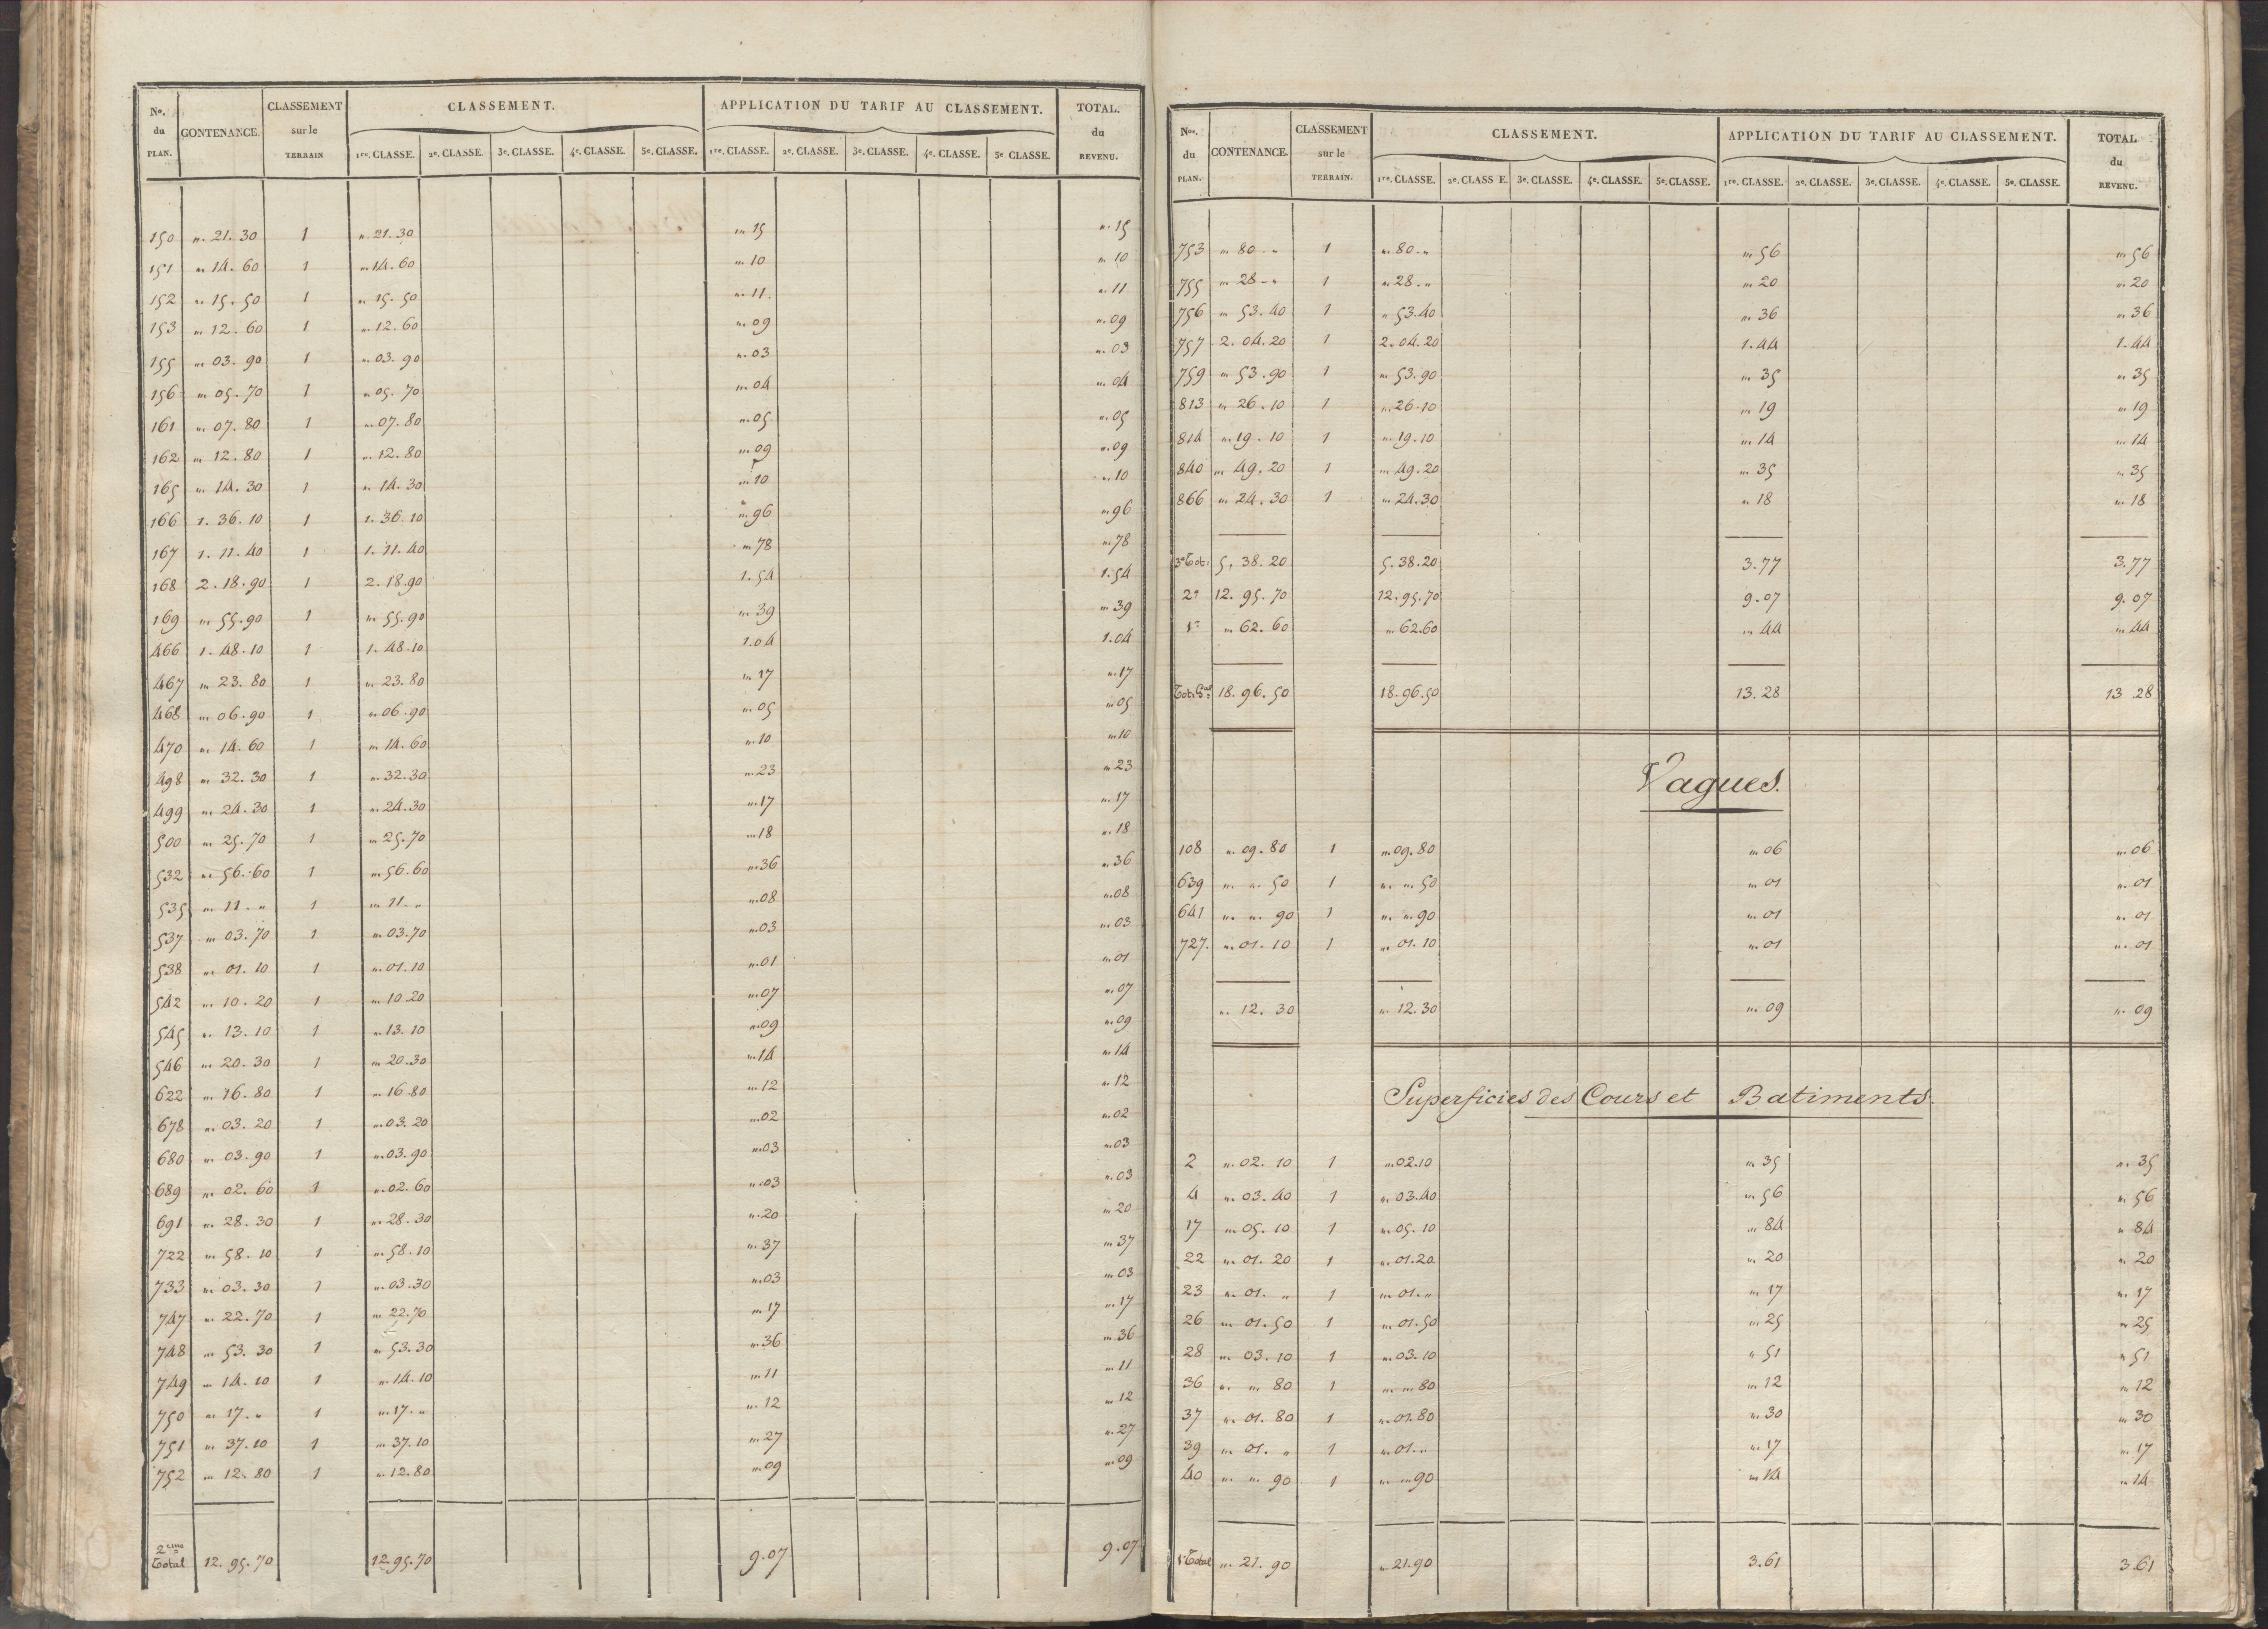 No. du PLAN. CONTENANCE. CLASSEMENT sur le TERRAIN CLASSEMENT. APPLICATION DU TARIF AU CLASSEMENT. TOTAL. du REVENU.
1re. CLASSE. 2e. CLASSE. 3e. CLASSE. 4e. CLASSE. 5e. CLASSE. 1re. CLASSE. 2e. CLASSE. 3e. CLASSE. 4e. CLASSE. 5e. CLASSE.
150 „. 21. 30 1 „. 21. 30 „. 15 „. 15
151 „. 14. 60 1 „. 14. 60 „. 10 „. 10
152 „. 15. 50 1 „. 15. 50 „. 11. „. 11
153 „. 12. 60 1 „. 12. 60 „. 09 „. 09
155 „. 03. 90 1 „. 03. 90 „. 03 „. 03
156 „. 05. 70 1 „. 05. 70 „. 04 „. 04
161 „. 07. 80 1 „. 07. 80 „. 05 „. 05
162 „. 12. 80 1 „. 12. 80 „. 09 „. 09
165 „. 14. 30 1 „. 14. 30 „. 10 „. 10
166 1. 36. 10 1 1. 36. 10 „. 96 „. 96
167 1. 11. 40 1 1. 11. 40 „. 78 „. 78
168 2. 18. 90 1 2. 18. 90 1. 54 1. 54
169 „. 55. 90 1 „. 55. 90 „. 39 „. 39
466 1. 48. 10 1 1. 48. 10 1. 04 1. 04
467 „. 23. 80 1 „. 23. 80 „. 17 „. 17
468 „. 06. 90 1 „. 06. 90 „. 05 „. 05
470 „. 14. 60 1 „. 14. 60 „. 10 „. 10
498 „. 32. 30 1 „. 32. 30 „. 23 „. 23
499 „. 24. 30 1 „. 24. 30 „. 17 „. 17
500 „. 25. 70 1 „. 25. 70 „. 18 „. 18
532 „. 56. 60 1 „. 56. 60 „. 36 „. 36
535 „. 11. „ 1 „. 11. „ „. 08 „. 08
537 „. 03. 70 1 „. 03. 70 „. 03 „. 03
538 „. 01. 10 1 „. 01. 10 „. 01 „. 01
542 „. 10. 20 1 „. 10. 20 „. 07 „. 07
545 „. 13. 10 1 „. 13. 10 „. 09 „. 09
546 „. 20. 30 1 „. 20. 30 „. 14 „. 14
622 „. 16. 80 1 „. 16. 80 „. 12 „. 12
678 „. 03. 20 1 „. 03. 20 „. 02 „. 02
680 „. 03. 90 1 „. 03. 90 „. 03 „. 03
689 „. 02. 60 1 „. 02. 60 „. 03 „. 03
691 „. 28. 30 1 „. 28. 30 „. 20 „. 20
722 „. 58. 10 1 „. 58. 10 „. 37 „. 37
733 „. 03. 30 1 „. 03. 30 „. 03 „. 03
747 „. 22. 70 1 „. 22. 70 „. 17 „. 17
748 „. 53. 30 1 „. 53. 30 „. 36 „. 36
749 „. 14. 10 1 „. 14. 10 „. 11 „. 11
750 „. 17. „ 1 „. 17. „ „. 12 „. 12
751 „. 37. 10 1 „. 37. 10 „. 27 „. 27
752 „. 12. 80 1 „. 12. 80 „. 09 „. 09
2eme Total 12. 95. 70 12. 95. 70 9. 07 9. 07
Nos. du PLAN. CONTENANCE. CLASSEMENT sur le TERRAIN. CLASSEMENT. APPLICATION DU TARIF AU CLASSEMENT. TOTAL du REVENU.
1re. CLASSE. 2e. CLASS E. 3e. CLASSE. 4e. CLASSE. 5e. CLASSE. 1re. CLASSE. 2e. CLASSE. 3e. CLASSE. 4e. CLASSE. 5e. CLASSE.
753 „. 80. „ 1 „. 80. „ „. 56 „. 56
755 „. 28. „ 1 „. 28. „ „. 20 „. 20
756 „. 53. 40 1 „. 53. 40 „. 36 „. 36
757 2. 04. 20 1 2. 04. 20 1. 44 1. 44
759 „. 53. 90 1 „. 53. 90 „. 35 „. 35
813 „. 26. 10 1 „. 26. 10 „. 19 „. 19
814 „. 19. 10 1 „. 19. 10 „. 14 „. 14
840 „. 49. 20 1 „. 49. 20 „. 35 „. 35
866 „. 24. 30 1 „. 24. 30 „. 18 „. 18
3e Tot. 5. 38. 20 5. 38. 20 3. 77 3. 77
2e 12. 95. 70 12. 95. 70 9. 07 9. 07
1r „. 62. 60 „. 62. 60 „. 44 „. 44
Tot. Gal 18. 96. 50 18. 96. 50 13. 28 13. 28
Vagues.
108 „. 09. 80 1 „. 09. 80 „. 06 „. 06
639 „. „. 50 1 „. „. 50 „. 01 „. 01
641 „. „. 90 1 „. „. 90 „. 01 „. 01
727. „. 01. 10 1 „. 01. 10 „. 01 „. 01
„. 12. 30 „. 12. 30 „. 09 „. 09
Superficies des Cours et Batiments.
2 „. 02. 10 1 „. 02. 10 „. 35 „. 35
4 „. 03. 40 1 „. 03. 40 „. 56 „. 56
17 „. 05. 10 1 „. 05. 10 „. 84 „. 84
22 „. 01. 20 1 „. 01. 20 „. 20 „. 20
23 „. 01. „ 1 „. 01. „ „. 17 „. 17
26 „. 01. 50 1 „. 01. 50 „. 25 „. 25
28 „. 03. 10 1 „. 03. 10 „. 51 „. 51
36 „. „. 80 1 „. „. 80 „. 12 „. 12
37 „. 01. 80 1 „. 01. 80 „. 30 „. 30
39 „. 01. „ 1 „. 01. „ „. 17 „. 17
40 „. „. 90 1 „. „. 90 „. 14 „. 14
1r Total „. 21. 90 „. 21. 90 3. 61 3. 61